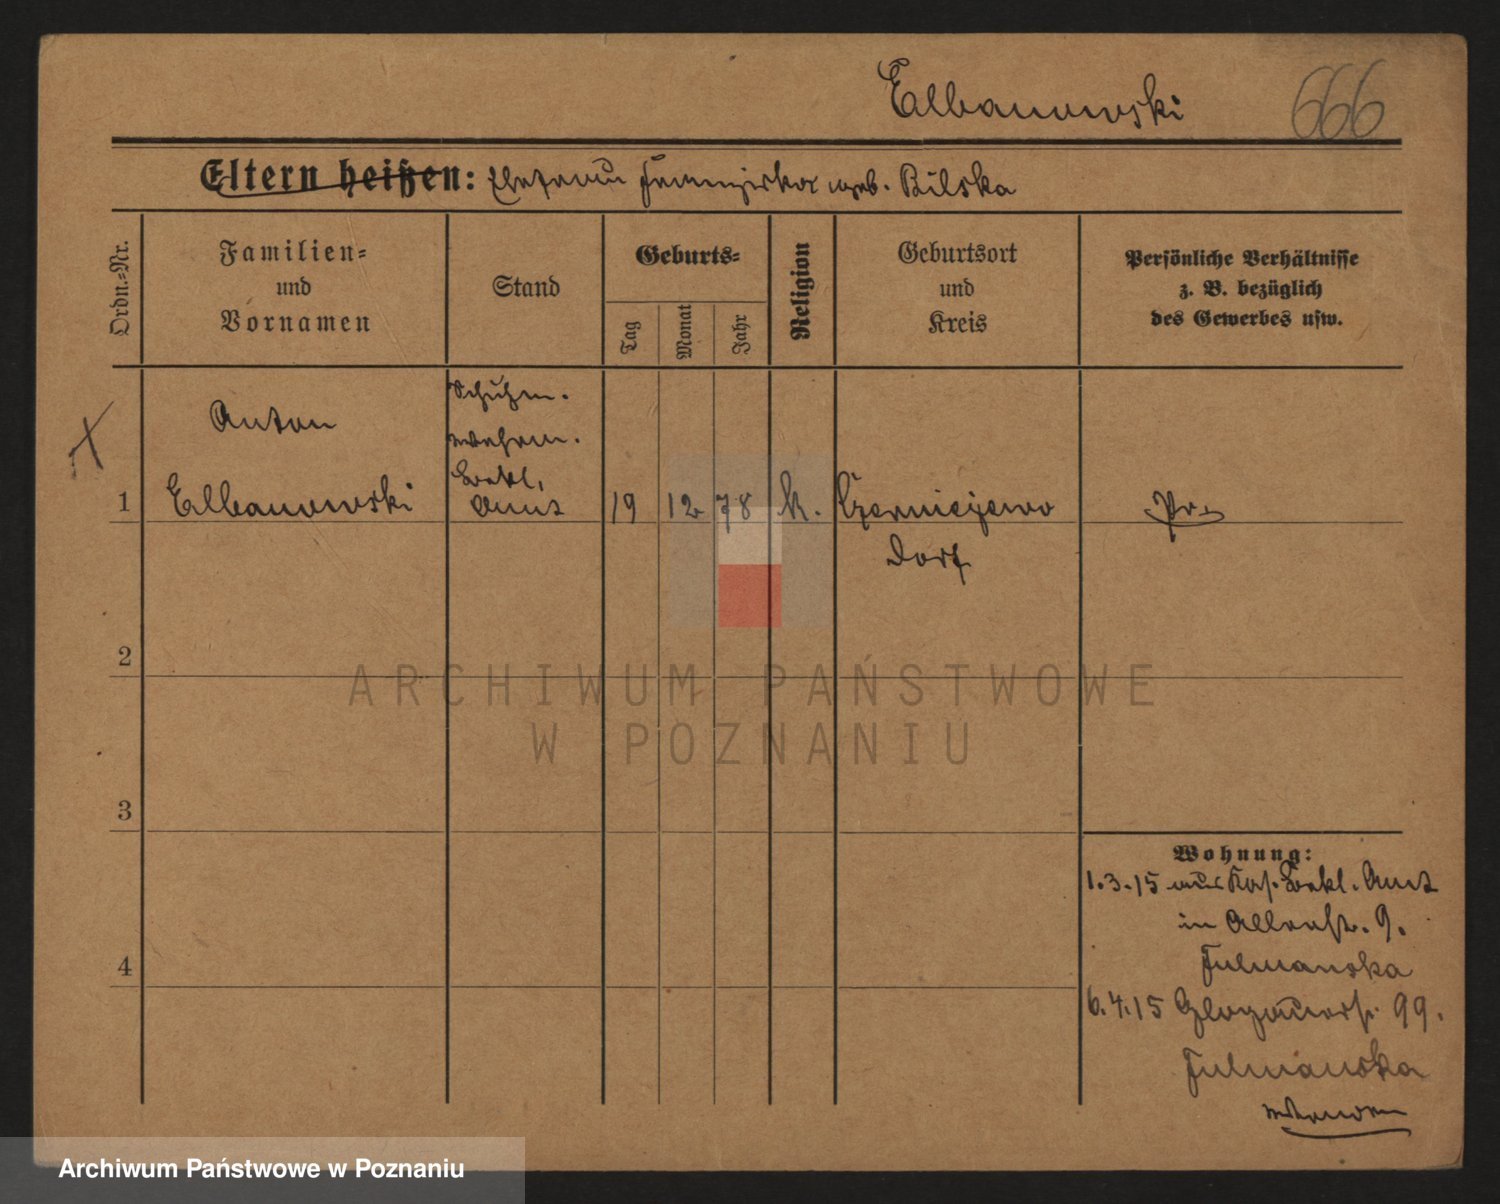 Elbanowski 666
Eltern heißen: Ehefrau Franziska geb. Bilska
Ordn.-Nr.
Familien-
und
Vornamen
Stand
Geburts-
Tag
Monat
Jahr
Religion
Geburtsort
und
Kreis
Persönliche Verhältnisse
z. B. bezüglich
des Gewerbes usw.
Schuhm.
Anton
Bekl.
1 Elbanowski Amt 19 12 78 k. Czerniejewo Pr.
Dorf
2
3
4
Wohnung:
1.3.15 aus Kos. Bekl. Amt
in Allerstr. 9.
Fulmanska
6.4.15 Glogauerstr. 99.
Fulmanska
ARCHIWUM PAŃSTWOWE
W POZNANIU
Archiwum Państwowe w Poznaniu